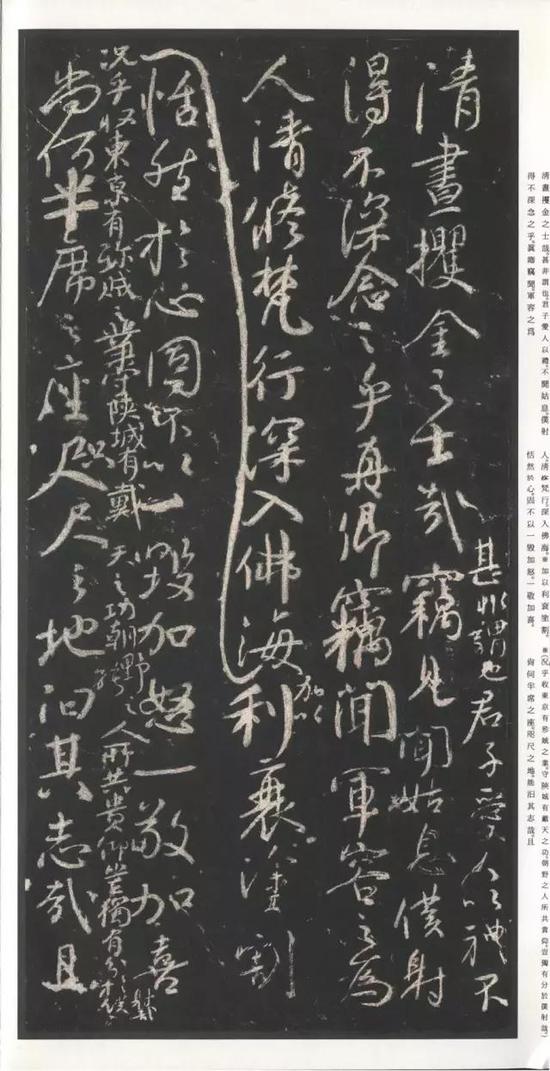 清晝攫金之士哉竊見聞姑息僕射
甚非謂也君子愛人以禮不
得不深念之乎真卿竊聞軍容之為
人清修梵行深入佛海加以利衰塗割
恬然於心固不以一毀加怒一敬加喜
况乎收東京有殄賊之業守陝城有戴天之功朝野之人所共貴仰豈獨有分於僕射哉
尚何半席之座咫尺之地汨其志哉且
清晝攫金之士哉,甚非謂也!君子愛人以禮,不聞姑息,僕射
得不深念之乎!眞卿竊聞,軍容之爲
人,清修梵行,深入佛海,*加以利衰塗割,
恬然於心,固不以一毁加怒,一敬加喜,
*(况乎收東京有殄賊之業,守陝城有戴天之功,朝野之人所共貴仰,豈獨有分於僕射哉!)
尚何半席之座,咫尺之地,能汨其志哉!且